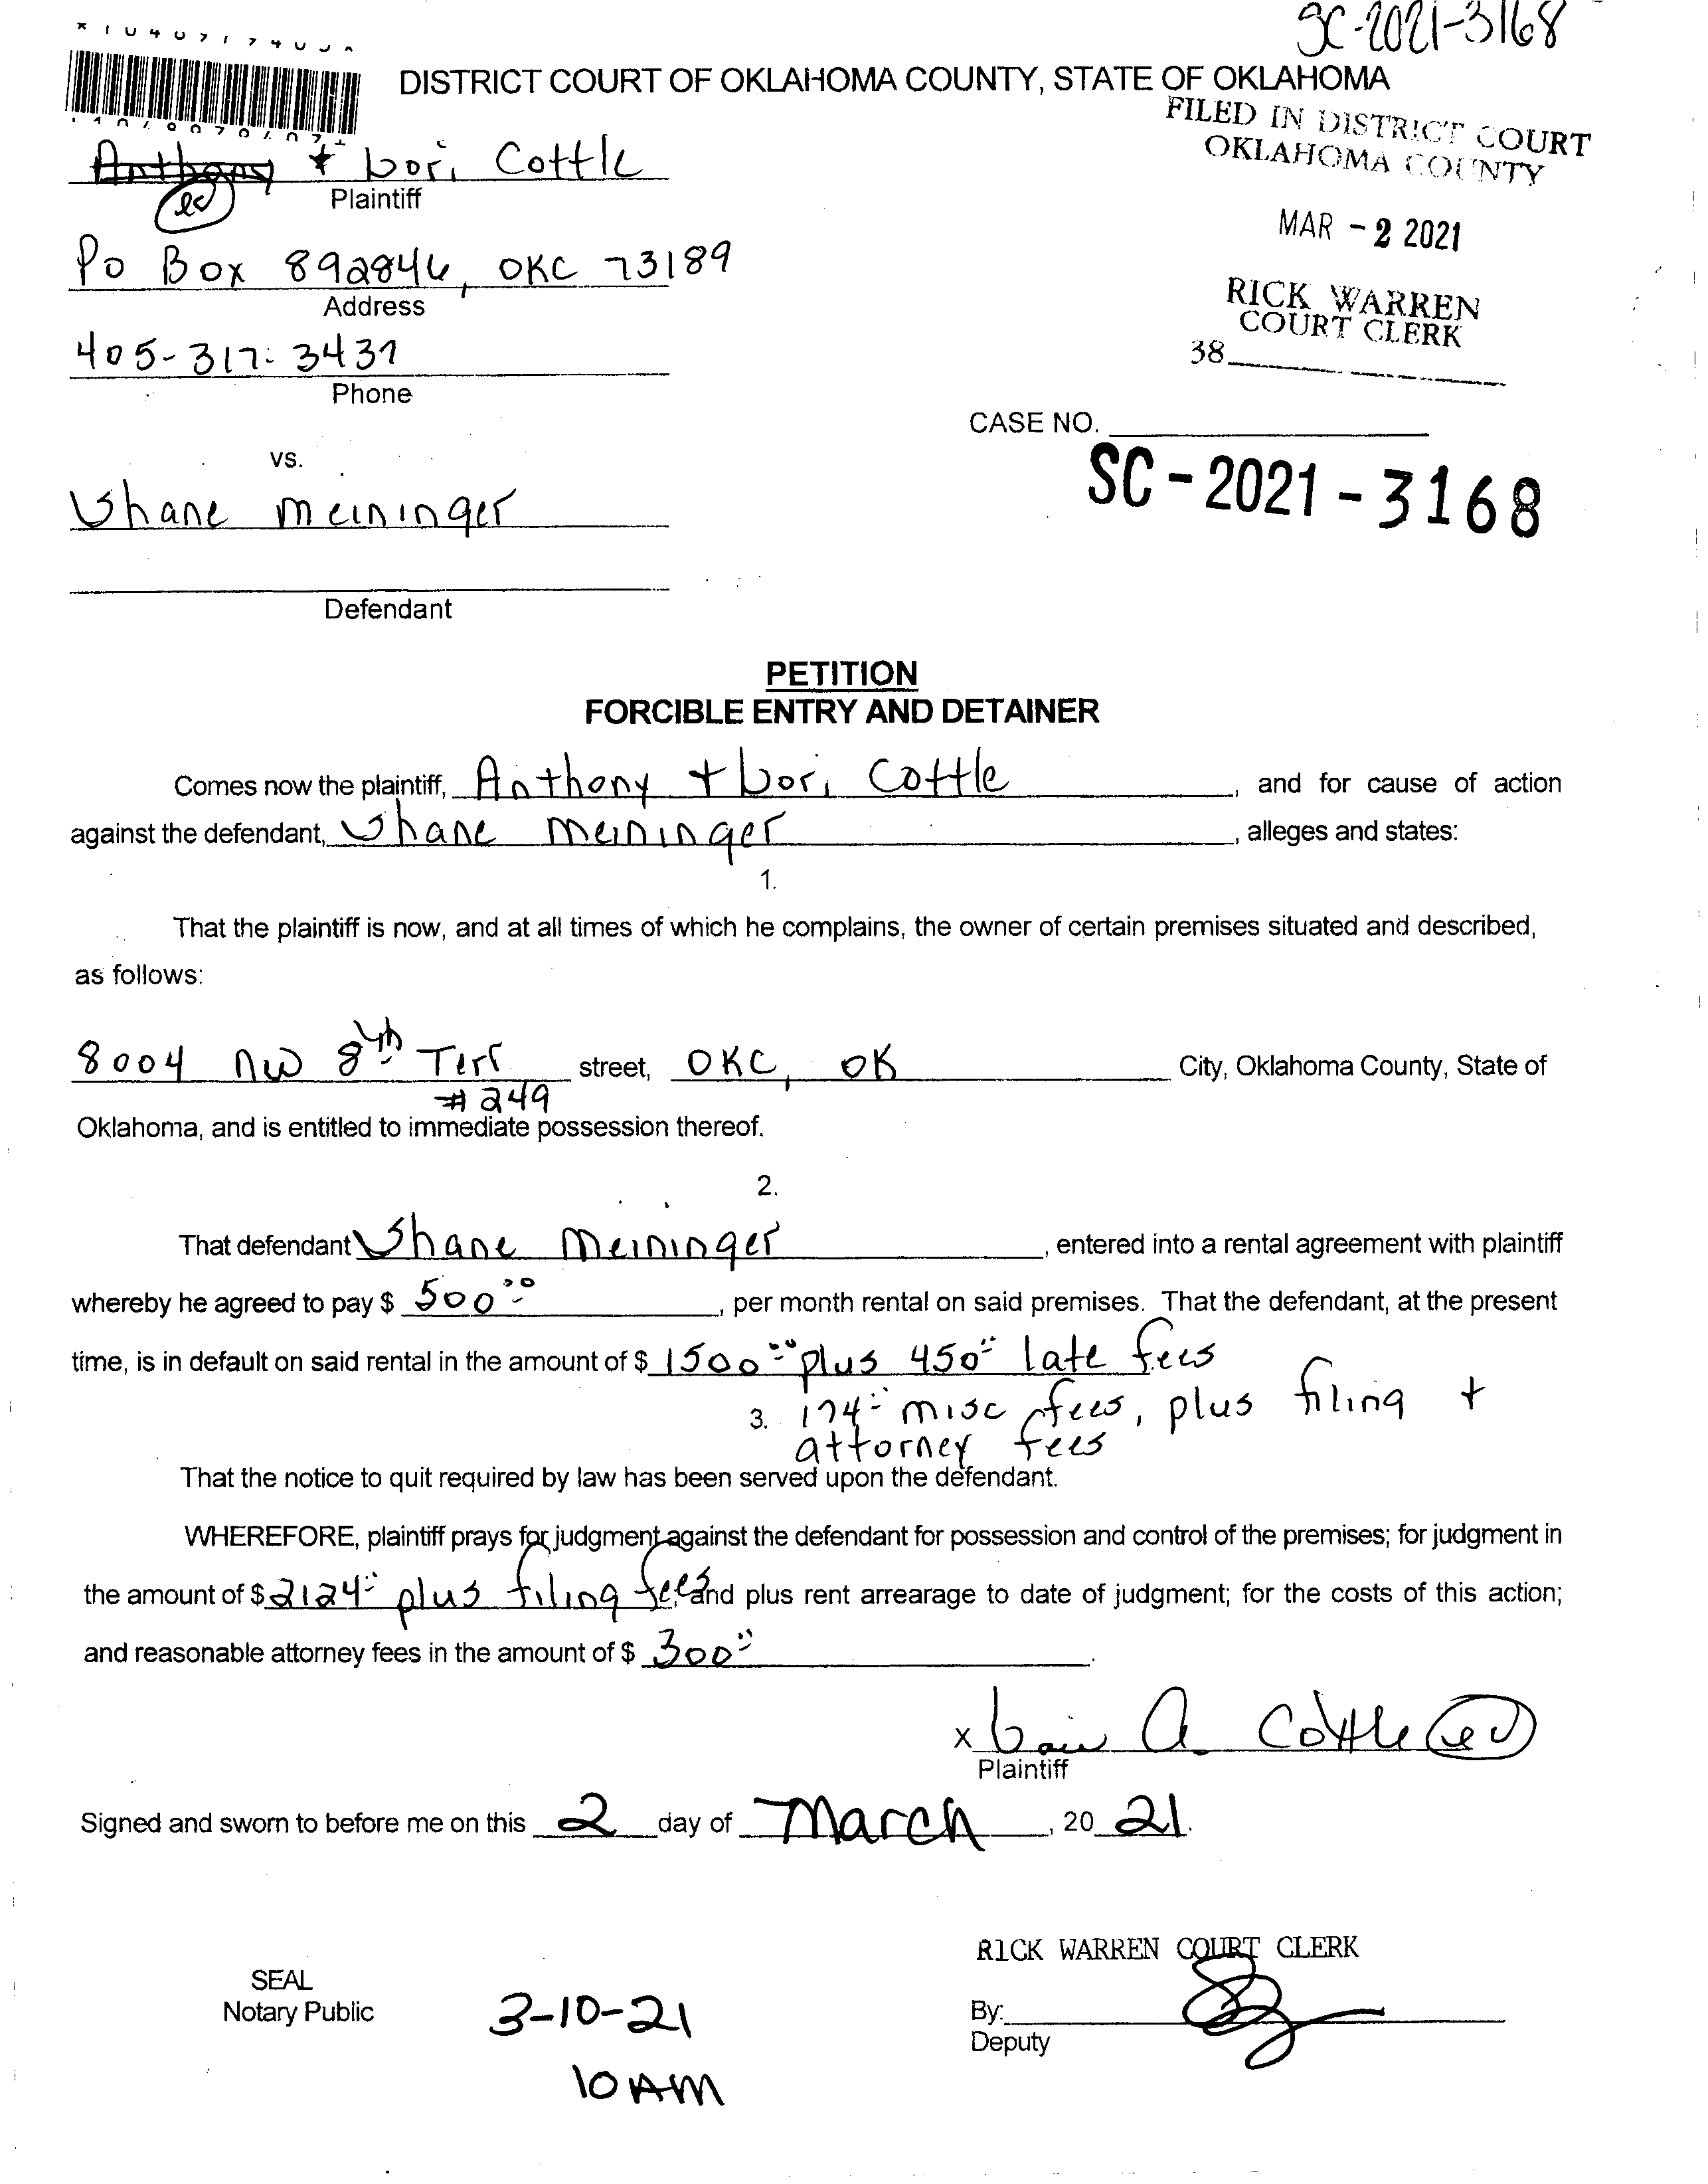 SC-2021-3168
DISTRICT COURT OF OKLAHOMA COUNTY, STATE OF OKLAHOMA
FILED IN DISTRICT COURT
OKLAHOMA COUNTY
Anthony + Lori Cottle
Plaintiff
LC
MAR - 2 2021
PO Box 892846, OKC 73189
Address
RICK WARREN
COURT CLERK
405-317-3437
38
Phone
CASE NO.
vs.
SC-2021-3168
Shane Meininger
Defendant
PETITION
FORCIBLE ENTRY AND DETAINER
Comes now the plaintiff, Anthony + Lori Cottle, and for cause of action
against the defendant, Shane Meininger, alleges and states:
1.
That the plaintiff is now, and at all times of which he complains, the owner of certain premises situated and described,
as follows:
8004 NW 8th Terr street, OKC, OK City, Oklahoma County, State of
#249
Oklahoma, and is entitled to immediate possession thereof.
2.
That defendant Shane Meininger, entered into a rental agreement with plaintiff
whereby he agreed to pay $ 500.00, per month rental on said premises. That the defendant, at the present
time, is in default on said rental in the amount of $ 1500.00 plus 450.00 late fees
3. 174.00 misc fees, plus filing +
attorney fees
That the notice to quit required by law has been served upon the defendant.
WHEREFORE, plaintiff prays for judgment against the defendant for possession and control of the premises; for judgment in
the amount of $ 2124.00 plus filing fees, and plus rent arrearage to date of judgment; for the costs of this action;
and reasonable attorney fees in the amount of $ 300.00.
X Lori A. Cottle
Plaintiff
Signed and sworn to before me on this 2 day of March, 2021.
RICK WARREN COURT CLERK
SEAL
Notary Public
3-10-21
By:
Deputy
10 AM